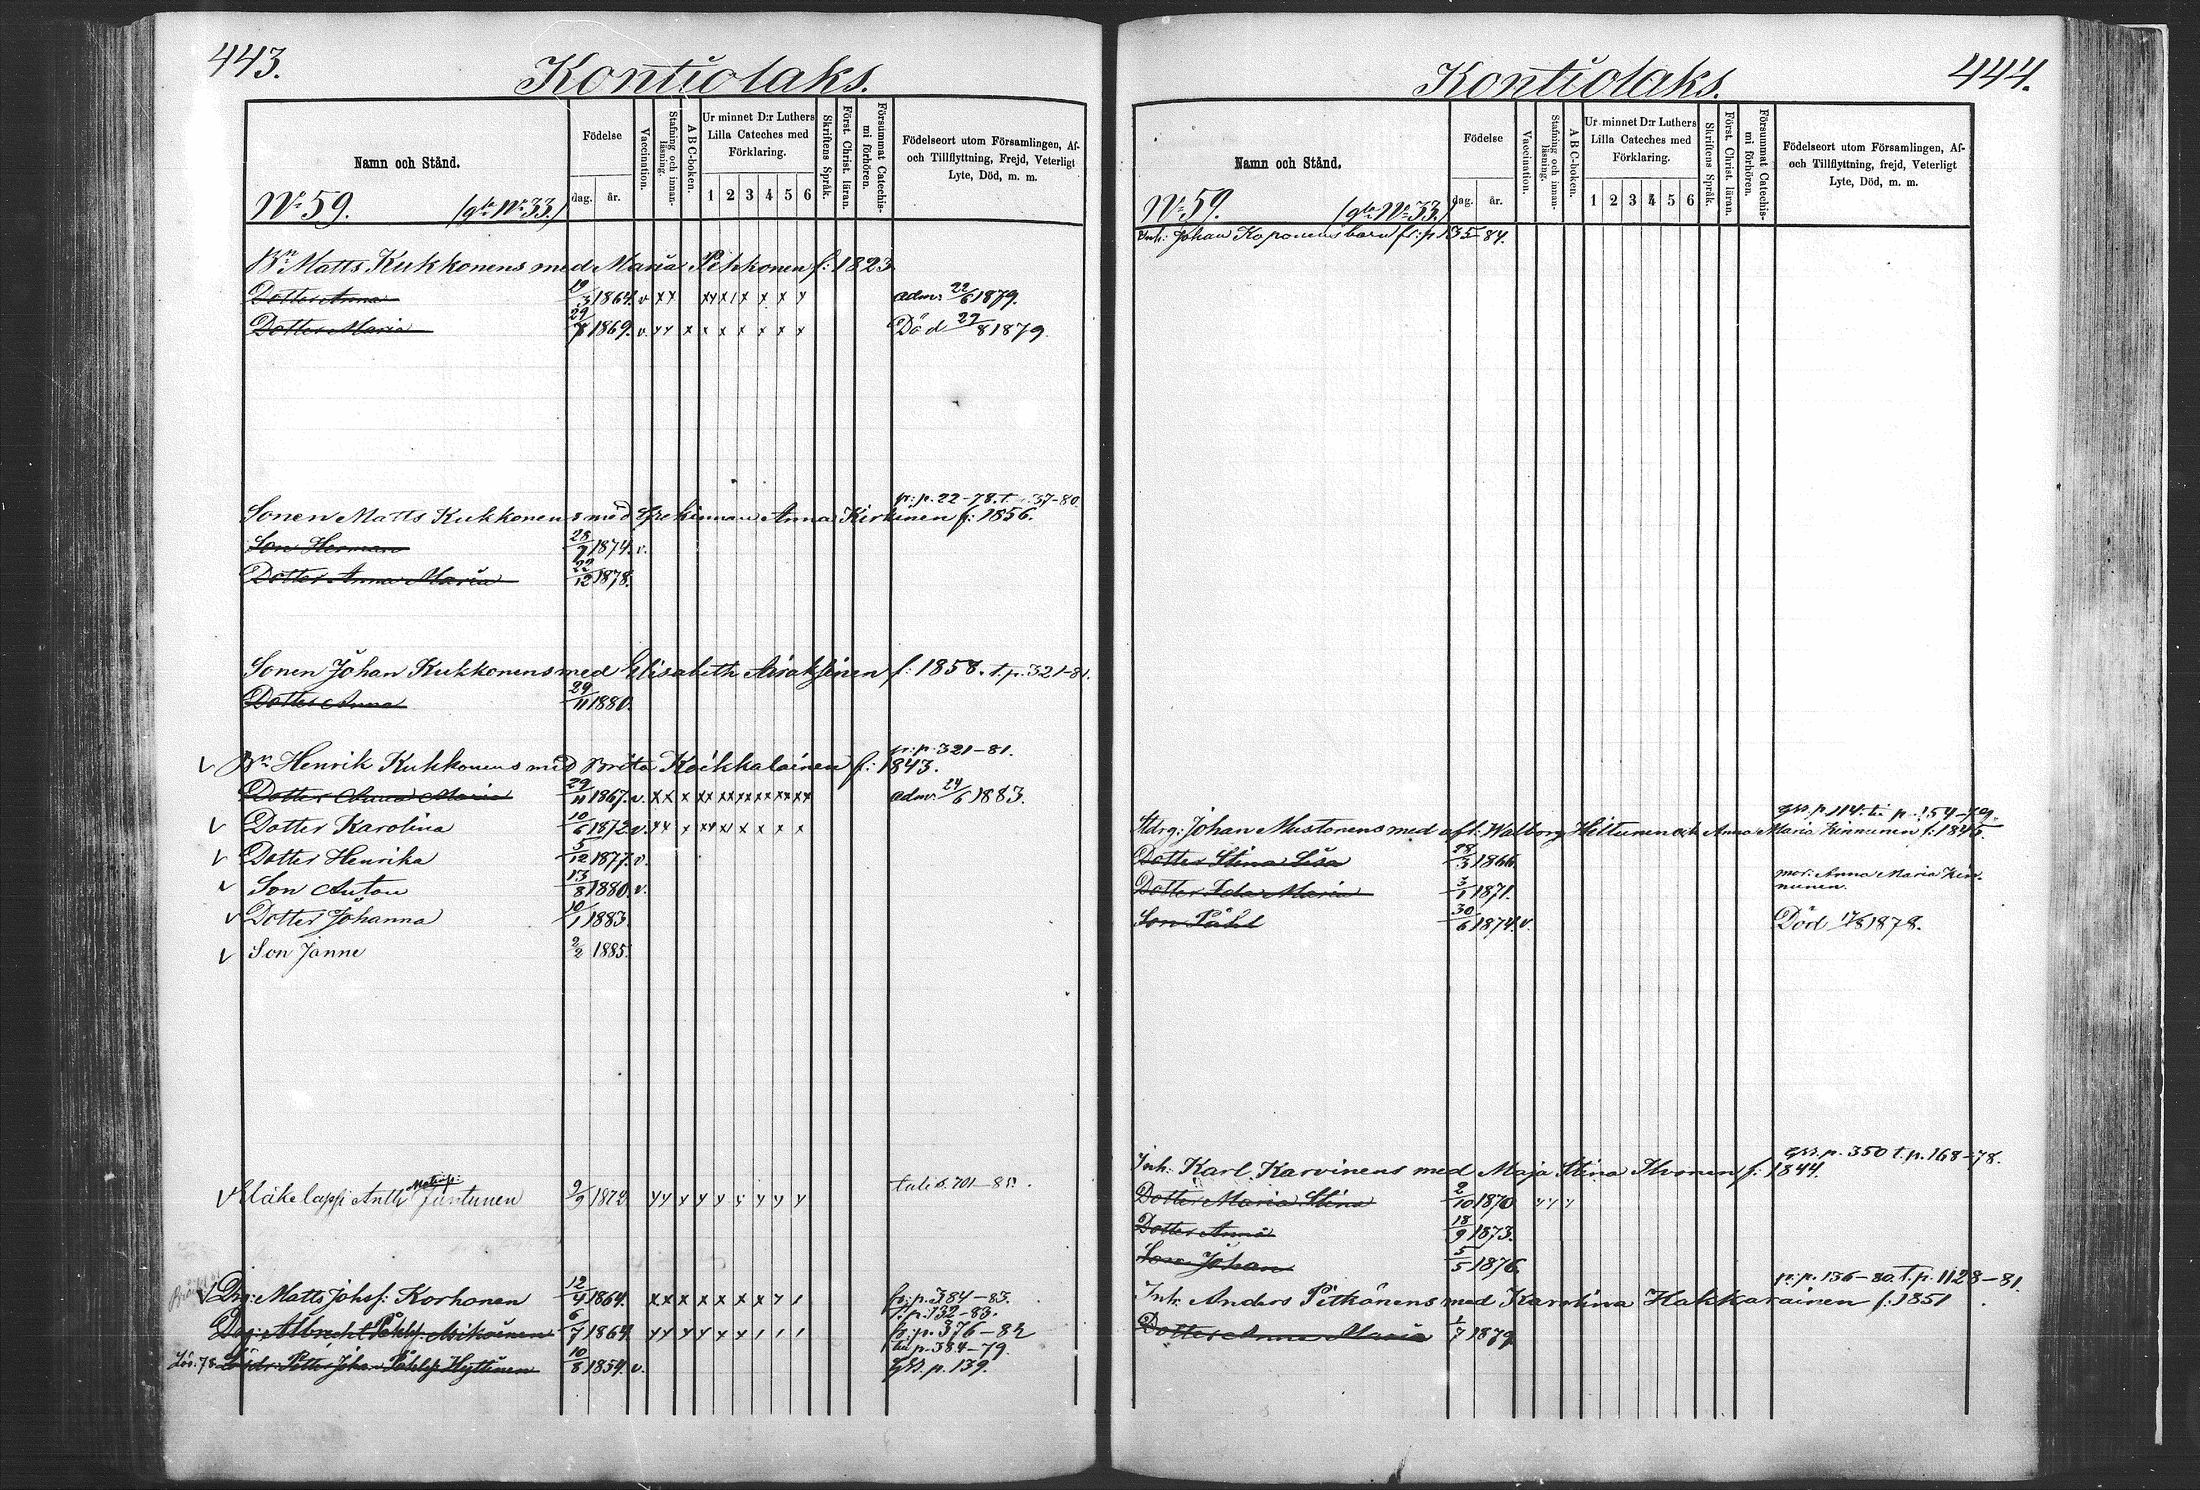 443.
Kontiolaks.
Namn och Stånd.
Födelse
dag. år.
Vaccination.
Stafning och innan-läsning.
A B C-boken.
Ur minnet D:r Luthers Lilla Cateches med Förklaring.
1 2 3 4 5 6
Skriftens Språk.
Först. Christ. läran.
Försummat Catechis-mi förhören.
Födelseort utom Församlingen, Af- och Tillflyttning, Frejd, Veterligt Lyte, Död, m. m.
No 59. (gla No 33.)
Bn Matts Kukkonens med Maria Pehkonen f: 1823
Dotter Anna 19/3 1864. v xx xx x 1 x x x x adm: 22/6 1879.
Dotter Maria 29/7 1869. v. xx x x x x x x x Död 27/8 1879
fr: p. 22-78. t. 37-80
Sonen Matts Kukkonens med Anna Kirkinen f: 1856.
Son Herman 28/7 1874. v.
Dotter Anna Maria 22/12 1878.
Sonen Johan Kukkonens med Elisabeth Asiaksinen f: 1858. t. p. 321-81.
Dotter Anna 29/11 1880.
fr: p. 321-81.
v Bn Henrik Kukkonens med Brita Koikkalainen f: 1843.
Dotter Anna Maria 29/11 1867. v. xx x xx xx xx xx xx xx adm: 24/6 1883.
v Dotter Karolina 10/6 1872. v. xx x xx x x x x x
v Dotter Henrika 5/12 1877. v.
v Son Anton 13/8 1880. v.
v Dotter Johanna 10/1 1883.
v Son Janne 2/2 1885.
v Kläkelappi Antti Matinp: Juntunen 9/9 1872 xx x x x x x x x tali s. 701-85.
v Drg: Matts Johsf: Korhonen 12/4 1864. xx x x x x x x 1 fr: p. 384-83.
t. p. 132-83.
Drg: Albrecht Påhlsf. Asikainen 6/7 1864 xx x x x x 1 1 1 fr: p. 376-82
till p. 384-79.
Lös. 78. Petter Johan Påhlsf. Hyttinen 10/8 1854. v. gls. p. 139.
444.
Kontiolaks.
Namn och Stånd.
Födelse
dag. år.
Vaccination.
Stafning och innan-läsning.
A B C-boken.
Ur minnet D:r Luthers Lilla Cateches med Förklaring.
1 2 3 4 5 6
Skriftens Språk.
Först. Christ. läran.
Försummat Catechis-mi förhören.
Födelseort utom Församlingen, Af- och Tillflyttning, frejd, Veterligt Lyte, Död, m. m.
No 59. (gla No 33.)
Inh: Johan Koponens barn fr: p. 135-84.
gls. p. 114. ti p. 154-79.
Stdrg: Johan Mustonens med afl. Walborg Hiltunen och Anna Maria Kinnunen f: 1845.
Dotter Stina Lisa 28/3 1866
Dotter Ida Maria 3/1 1871. mor: Anna Maria Kin-
nunen.
Son Påhl 30/6 1874. v. Död 17/8 1878.
gls. p. 350 t. p. 168-78.
Inh: Karl Karvinens med Maja Stina Ikonen f: 1844.
Dotter Maria Stina 2/10 1870 x x x
Dotter Anna 18/9 1873.
Son Johan 5/5 1876.
fr: p. 136-80. t. p. 1128-81.
Inh: Anders Pitkänens med Karolina Hakkarainen f: 1851
Dotter Anna Maria 1/7 1879